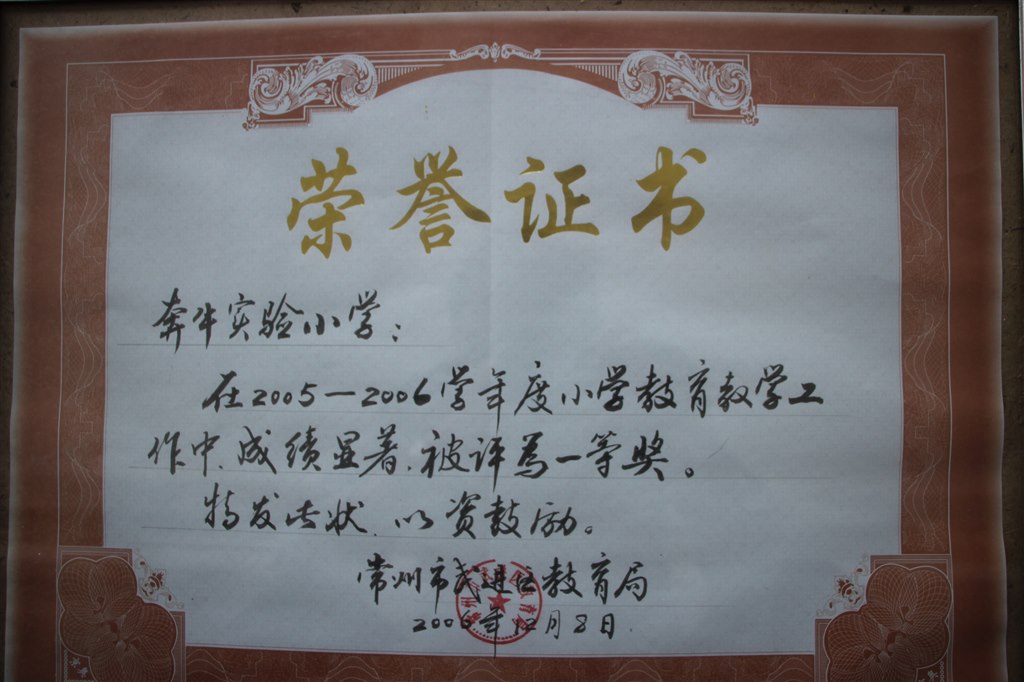 荣誉证书
奔牛实验小学:
在2005—2006学年度小学教育教学工
作中、成绩显著、被评为一等奖。
特发此状、以资鼓励。
常州市武进区教育局
2006年12月8日